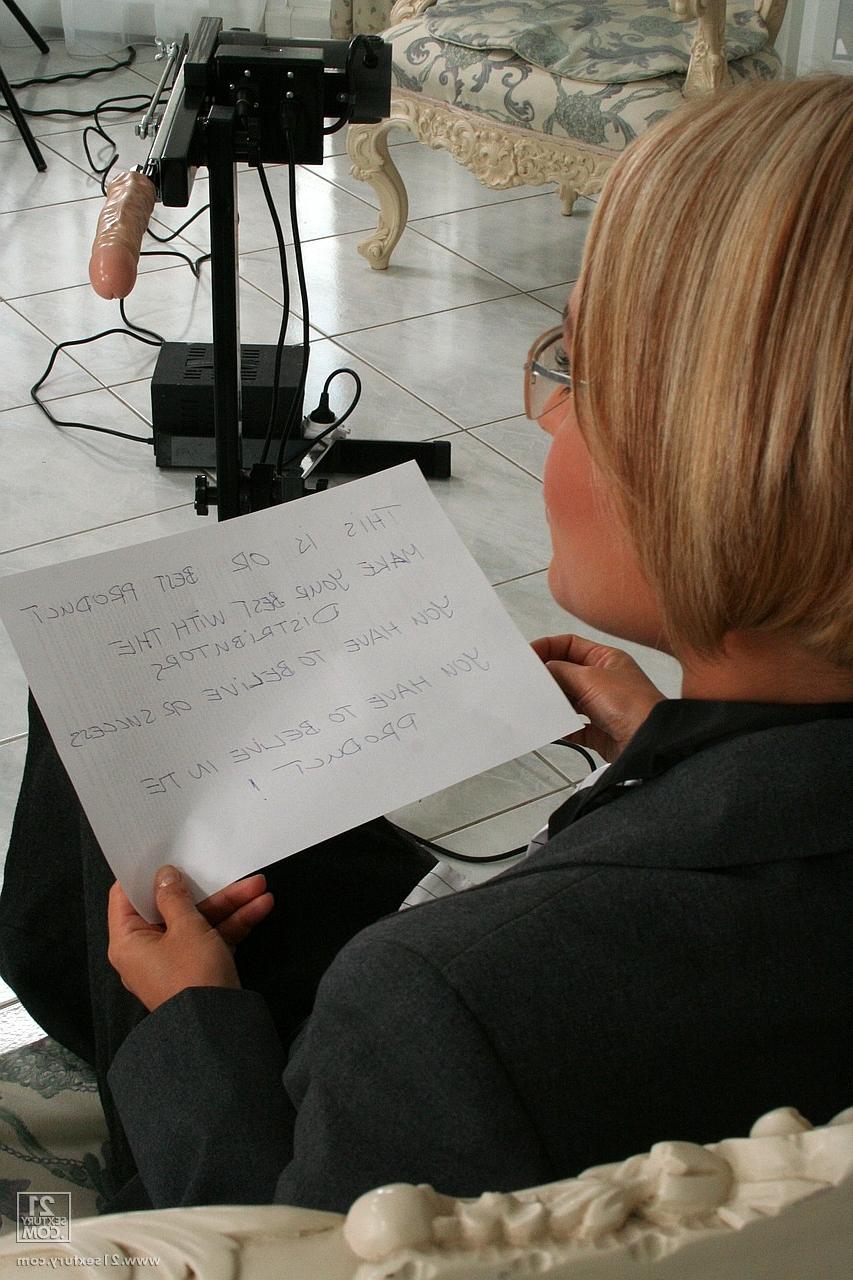 THIS IS OR BEST PRODUCT
MAKE YOUR BEST WITH THE
DISTRIBUTORS
YOU HAVE TO BELIVE OR SUCCESS
YOU HAVE TO BELIVE IN TE
PRODUCT !
21
SEXTURY
.COM
www.21sextury.com